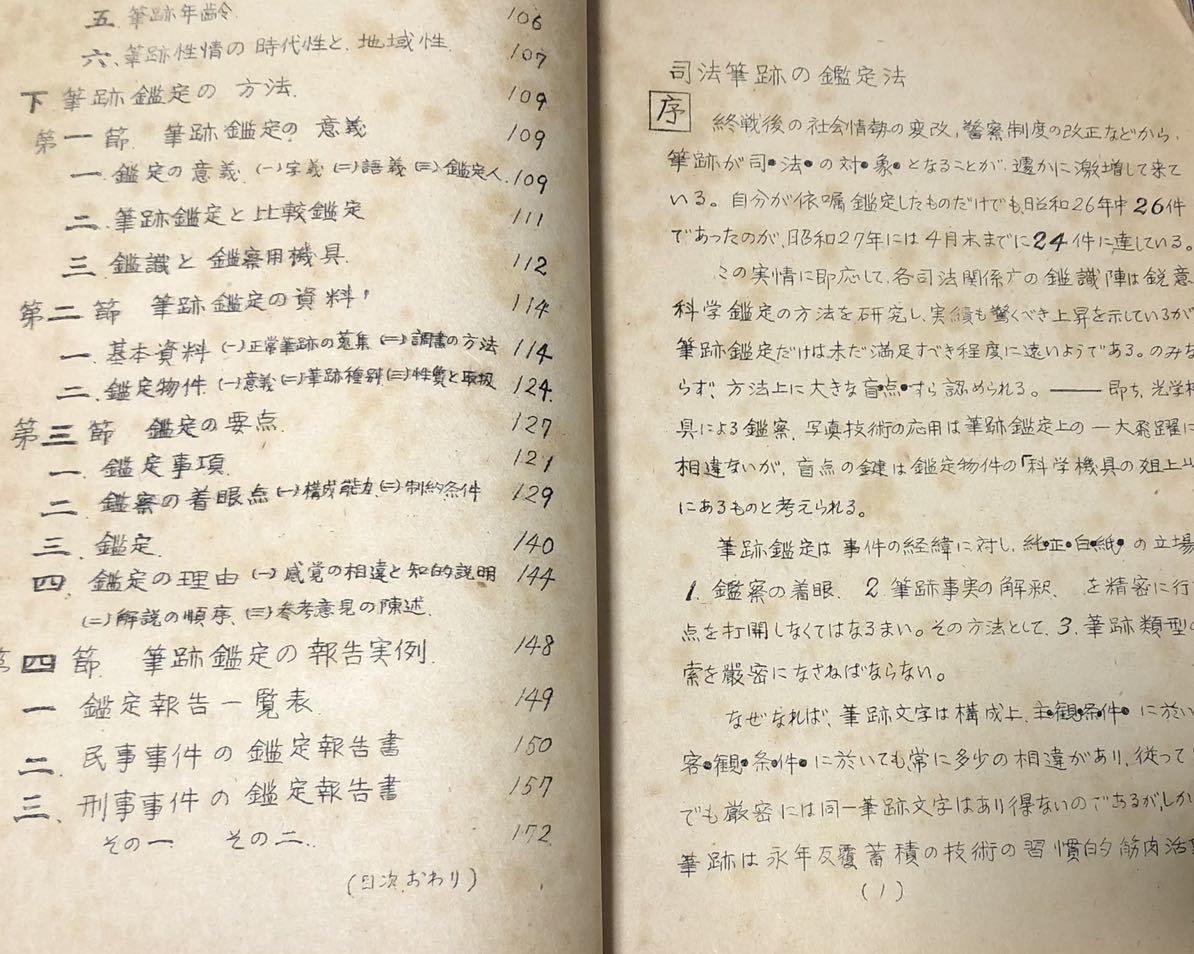 五 筆跡年齢 106
六、筆跡性情の時代性と、地域性 107
下 筆跡鑑定の方法 109
第一節 筆跡鑑定の意義 109
一 鑑定の意義 (一)字義(二)語義(三)鑑定人 109
二 筆跡鑑定と比較鑑定 111
三 鑑識と鑑察用機具 112
第二節 筆跡鑑定の資料 114
一 基本資料 (一)正常筆跡の蒐集(二)調書の方法 114
二 鑑定物件 (一)意義(二)筆跡種別(三)性質と取扱 124
第三節 鑑定の要点 127
一 鑑定事項 121
二 鑑察の着眼点(一)構成能力(二)制約条件 129
三、鑑定 140
四 鑑定の理由 (一)感覚の相違と知的説明 144
(二)解説の順序、(三)参考意見の陳述
四節 筆跡鑑定の報告実例 148
一 鑑定報告一覧表 149
二、民事事件の鑑定報告書 150
三、刑事事件の鑑定報告書 157
その一 その二 172
(目次おわり)
司法筆跡の鑑定法
序 終戦後の社会情勢の変改,警察制度の改正などから、
筆跡が司・法・の対・象・となることが、遽かに激増して来て
いる。自分が依嘱鑑定したものだけでも、昭和26年中26件
であったのが、昭和27年には4月末までに24件に達している。
この実情に即応して、各司法関係庁の鑑識陣は鋭意
科学鑑定の方法を研究し、実績も驚くべき上昇を示しているが
筆跡鑑定だけは未だ満足すべき程度に遠いようである。のみな
らず、方法上に大きな盲・点・すら認められる。―― 即ち、光学機
具による鑑察、写真技術の応用は筆跡鑑定上の一大飛躍に
相違ないが、盲点の鍵は鑑定物件の「科学機具の俎上以
にあるものと考えられる。
筆跡鑑定は事件の経緯に対し、純・正・白・紙・の立場
1. 鑑察の着眼、2. 筆跡事実の解釈、を精密に行
点を打開しなくてはなるまい。その方法として、3. 筆跡類型の
索を厳密になさねばならない。
なぜなれば、筆跡文字は構成上、主・観・条・件・に於い
客・観・条・件・に於いても、常に多少の相違があり、従って
でも厳密には同一筆跡文字はあり得ないのであるが、しか
筆跡は永年反覆蓄積の技術の習慣的筋肉活
(1)